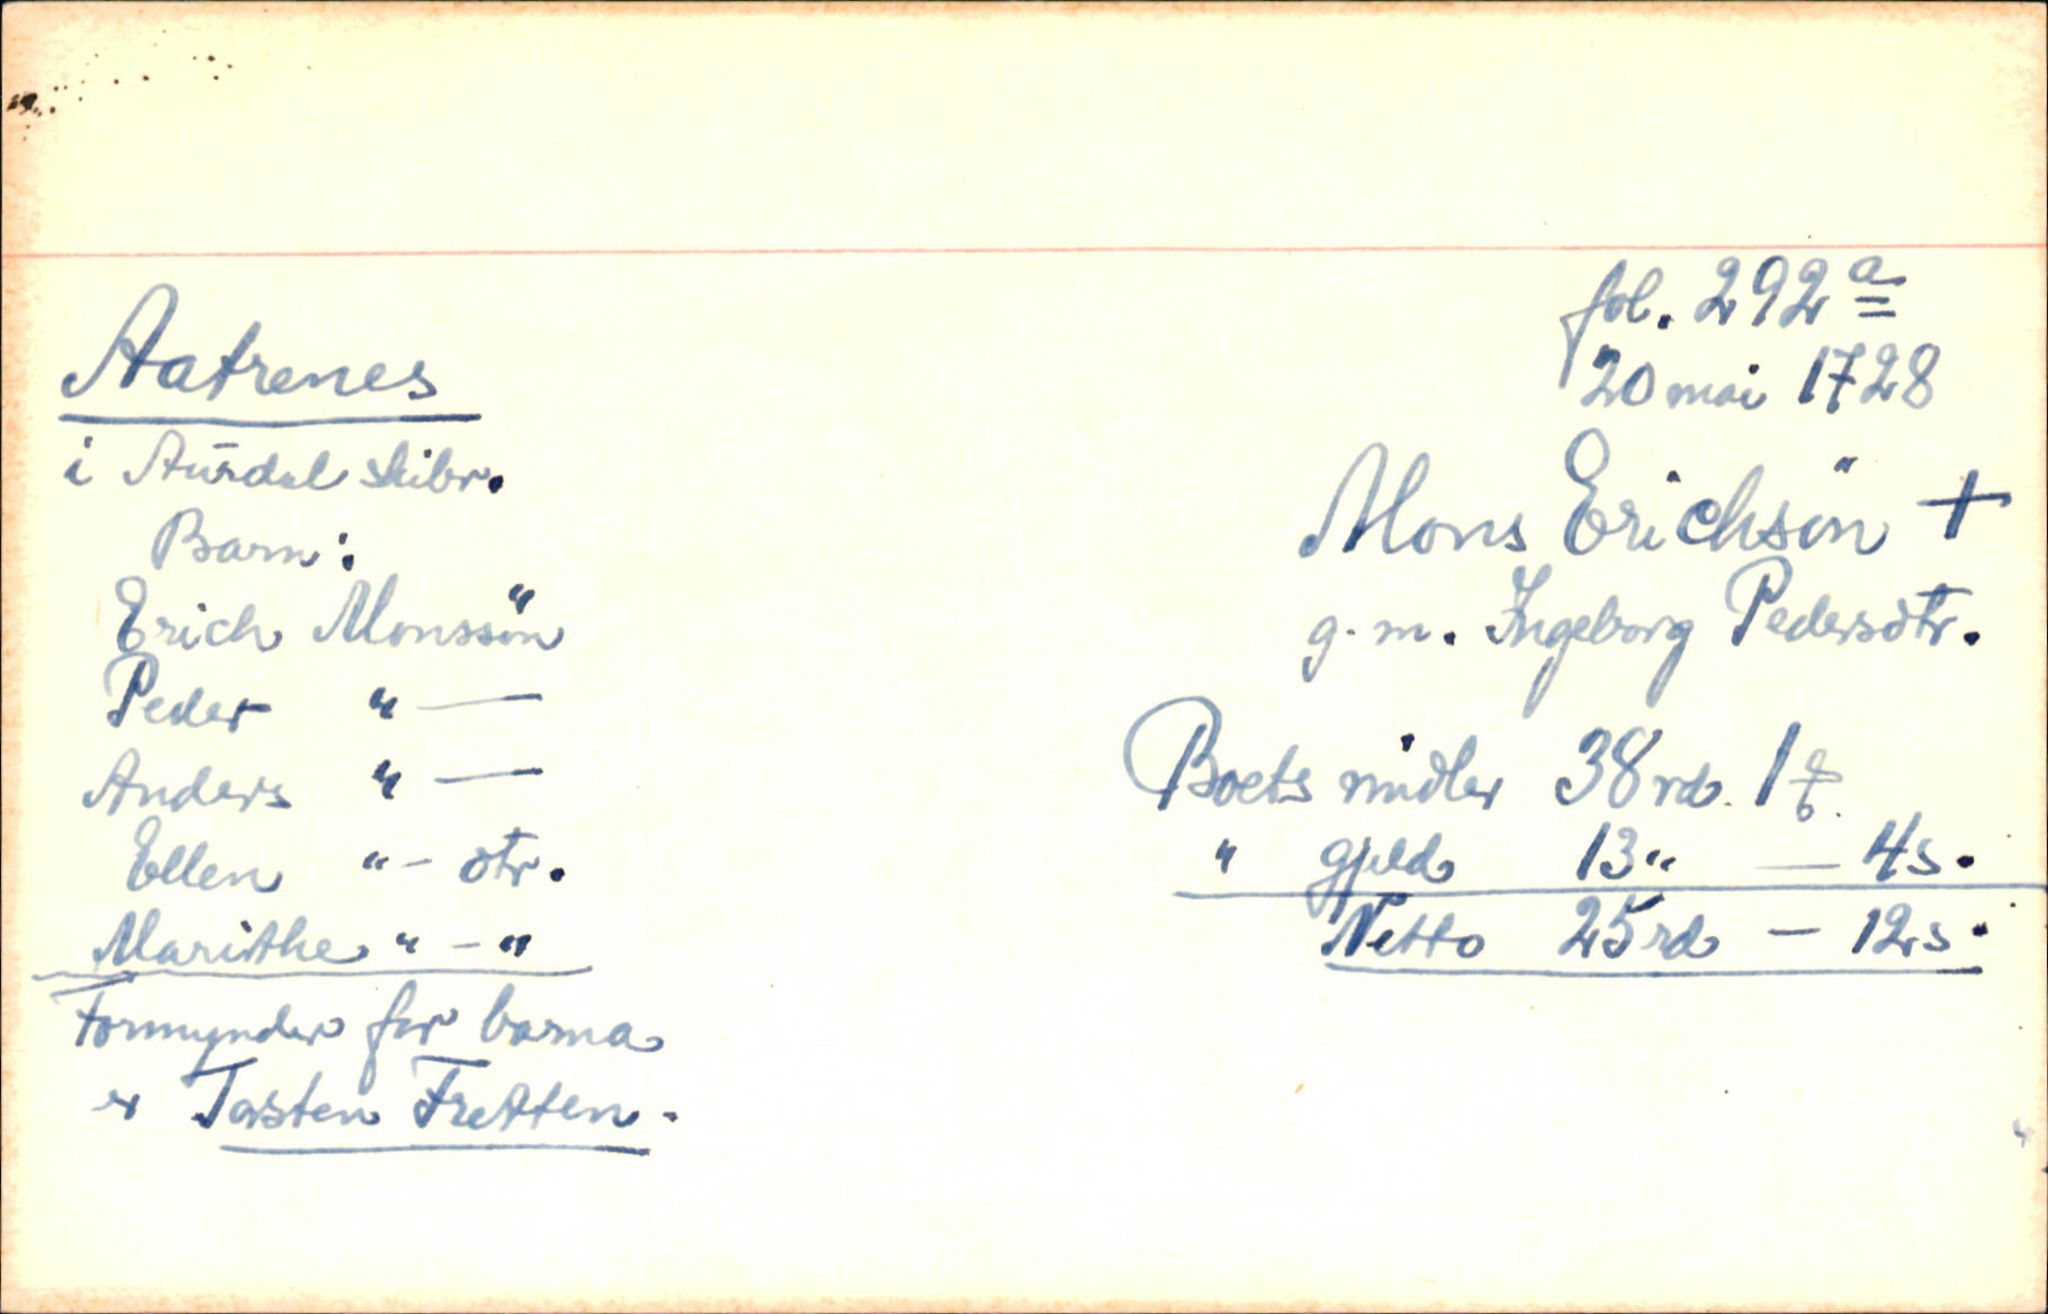 fol. 292 a
20 mai 1728
Aatrenes
i Aurdal skibr.
Mons Erichsön +
g. m. Ingeborg Pedersdtr.
Barn:
Erich Monssön
Peder " —
Anders " —
Ellen " - dtr.
Marithe " - "
Formynder for barna
er Torsten Fretten.
Boets midler 38 rd. 1
" gjeld 13 " — 4 s.
Netto 25 rd — 12 s.